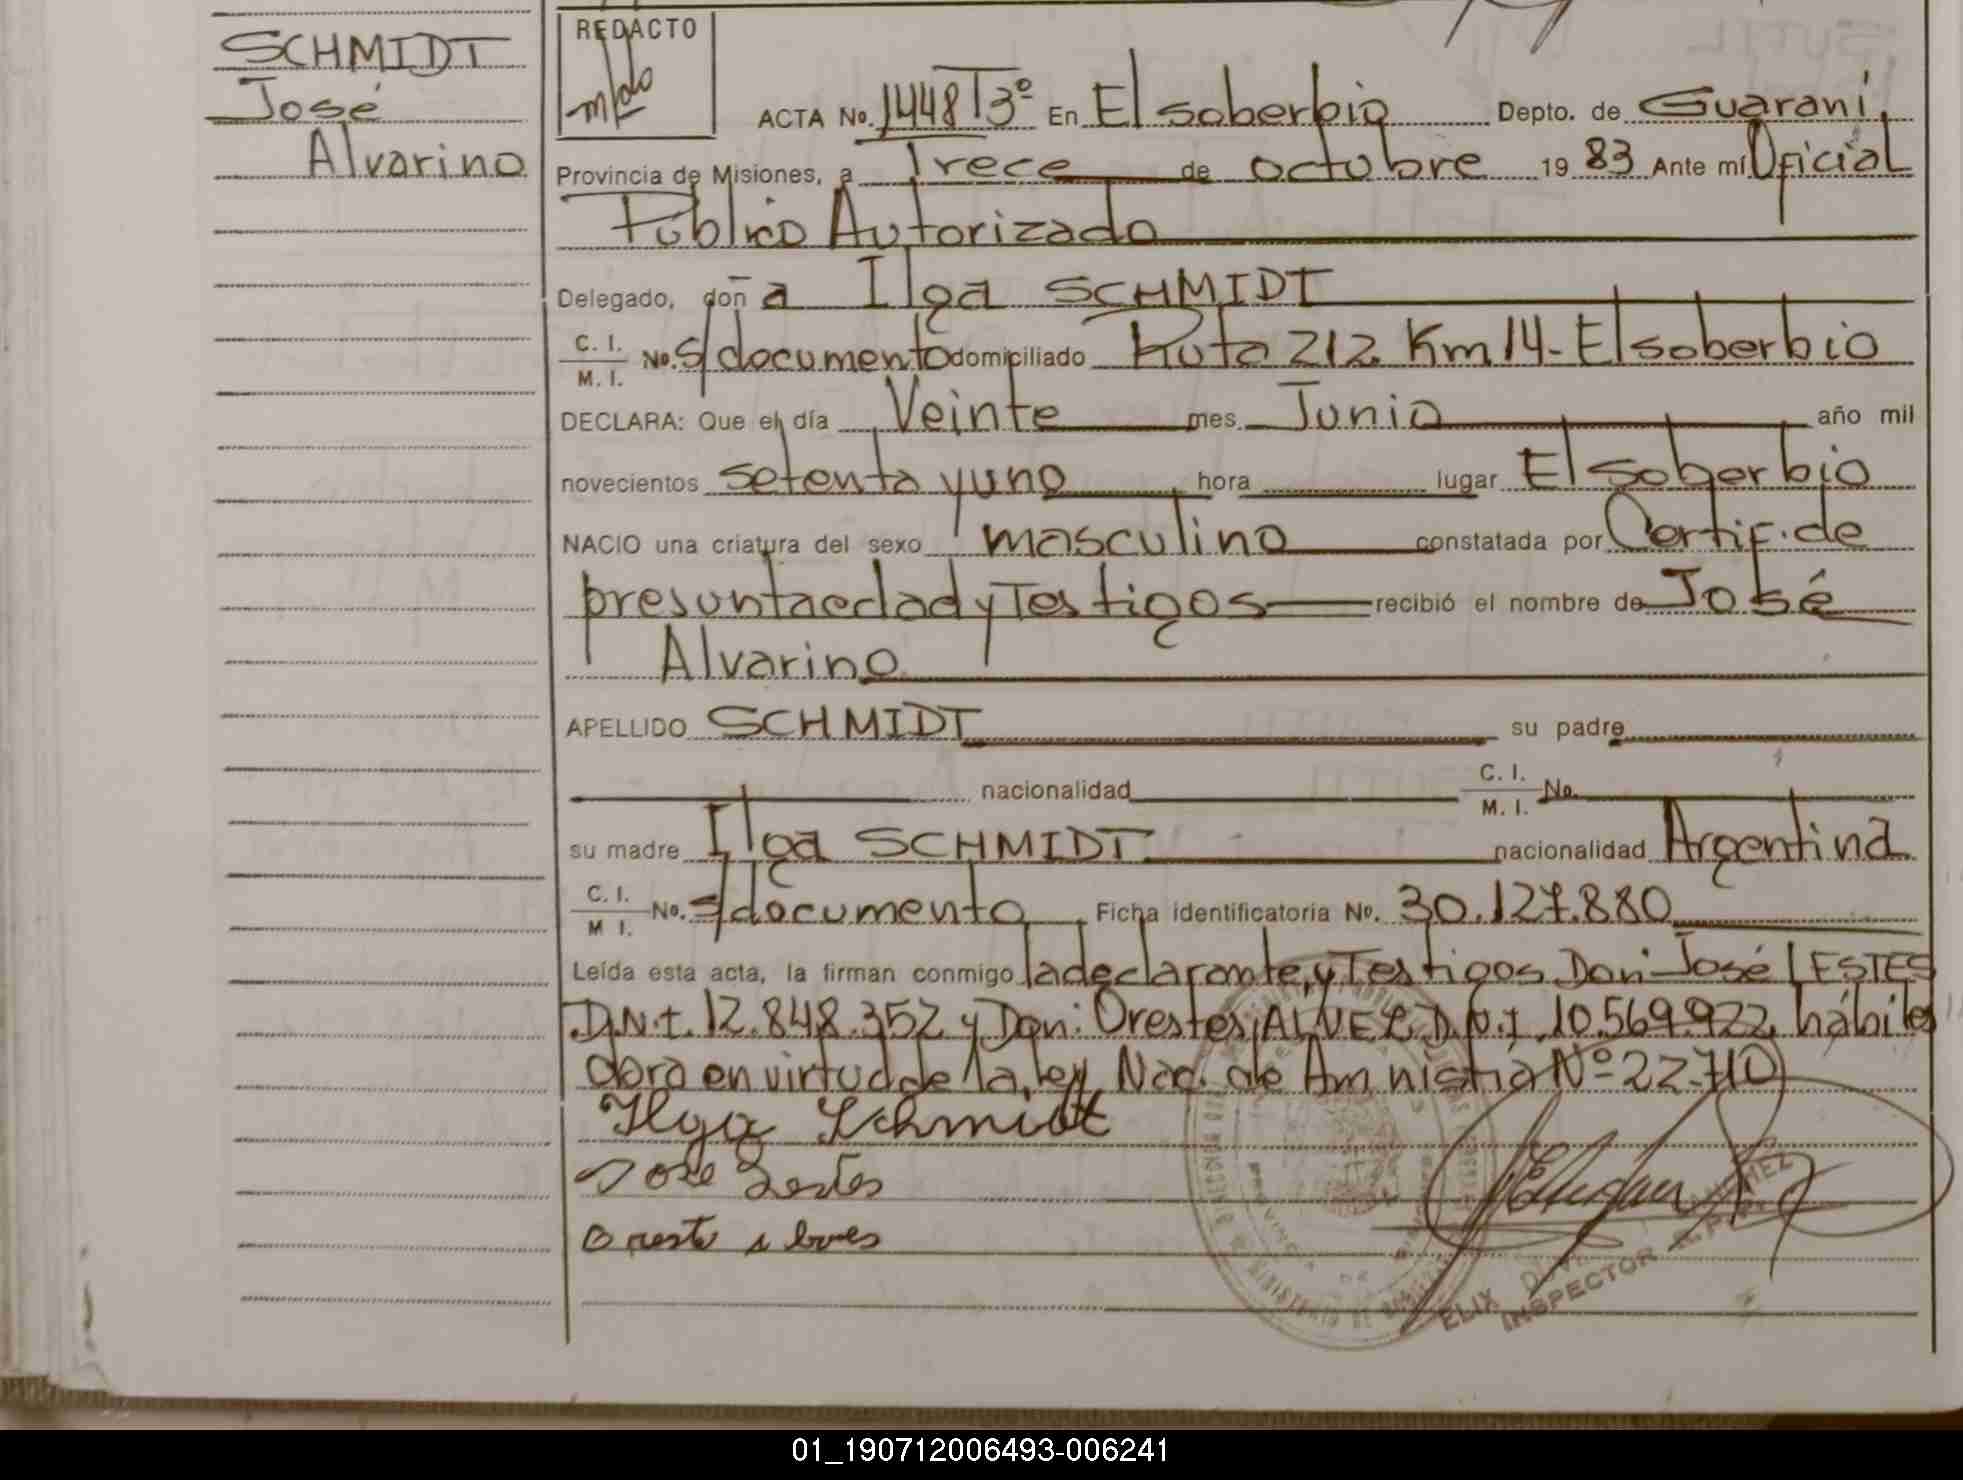 SCHMIDT
José
Alvarino
REDACTO
ACTA No. 1448 T3º En El soberbio Depto. de Guaraní,
Provincia de Misiones, a Trece de octubre 19 83 Ante mí Oficial
Público Autorizado
Delegado, don a Ilga SCHMIDT
C. I.
M. I. No. s/documento domiciliado Ruta 212 Km 14- El soberbio
DECLARA: Que el día Veinte mes Junio año mil
novecientos setenta y uno hora lugar El soberbio
NACIO una criatura del sexo masculino constatada por Certif. de
presunta edad y Testigos recibió el nombre de José
Alvarino
APELLIDO SCHMIDT su padre
nacionalidad C. I.
M. I. No.
su madre Ilga SCHMIDT nacionalidad Argentina
C. I.
M I. No. s/documento Ficha identificatoria No. 30.127.880
Leída esta acta, la firman conmigo la declarante, y Testigos Don: José LESTES
D.N.I. 12.848.352 y Don: Orestes ALVEZ D.N.I. 10.569.922 hábiles
obro en virtud de la ley Nac. de Amnistia Nº 22.710
Ilga Schmidt
Jose Lestes
INSPECTOR
01_190712006493-006241